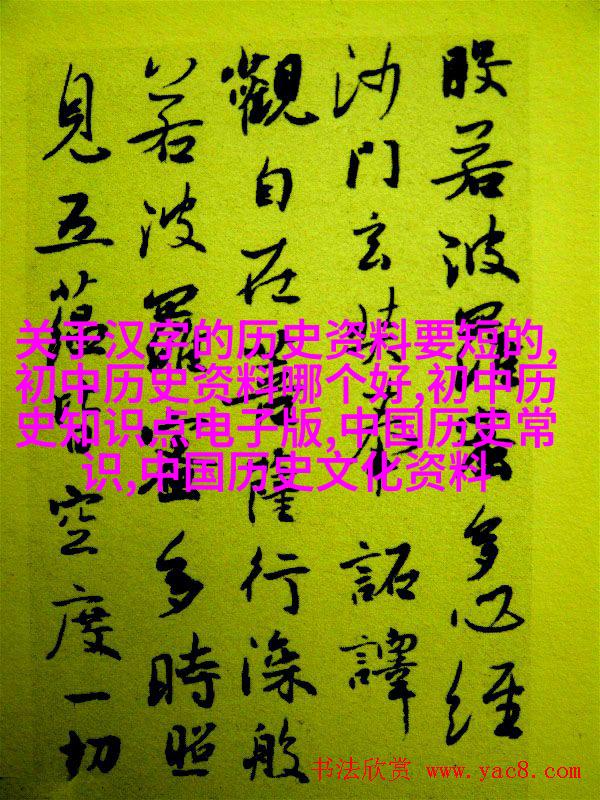 般若波羅蜜多心經
沙門玄奘奉 詔譯
觀自在菩薩行深般
若波羅蜜多時照
見五蘊皆空度一切
关于汉字的历史资料要短的,
初中历史资料哪个好,初中历
史知识点电子版,中国历史常
识,中国历史文化资料
书法欣赏 www.yac8.com